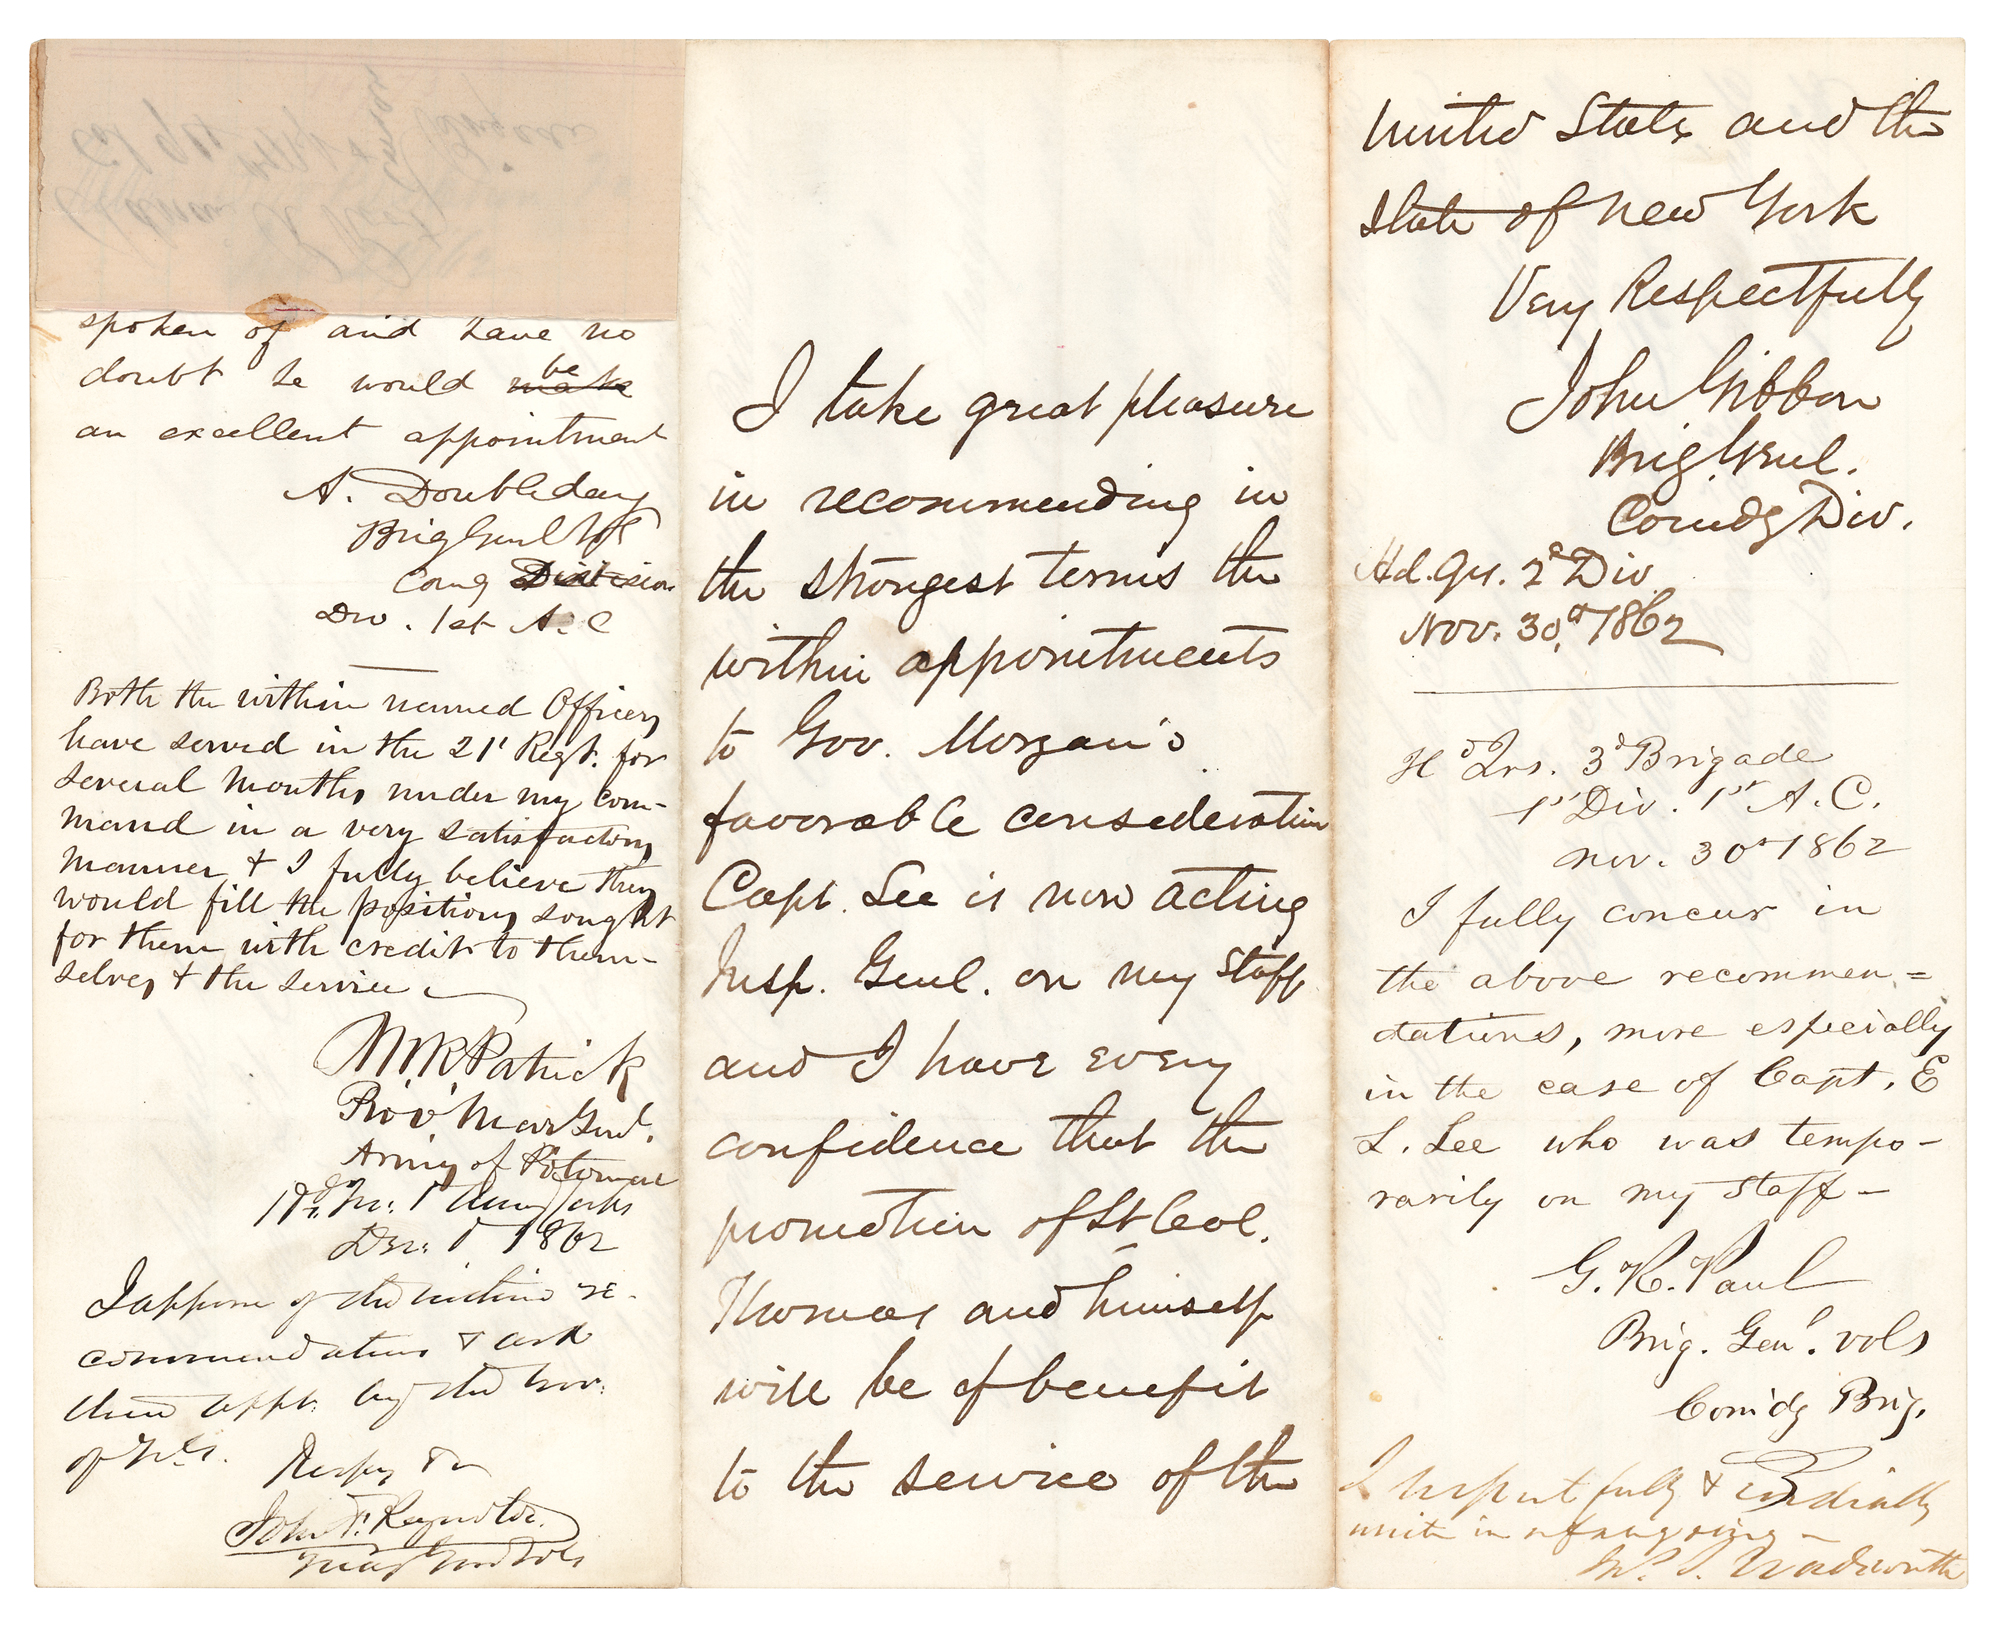 spoken of and have no
doubt he would be make
an excellent appointment
A. Doubleday
Brig Genl Vols
Comg Division
Div. 1st A.C
Both the within named Officers
have served in the 21st Regt. for
several months under my com-
mand in a very satisfactory
manner & I fully believe they
would fill the positions sought
for them with credit to them-
selves & the service
M R Patrick
Prov' Mar Genl.
Army of Potomac
Hd. Qrs. 1st Army Corps
Dec. 1st 1862
I approve of the within re-
commendations & ask
their appt. by the Gov.
of N.Y.
Respy &c
John F. Reynolds
Maj Genl Vols
I take great pleasure
in recommending in
the strongest terms the
within appointments
to Gov. Morgan's
favorable consideration
Capt. Lee is now acting
Insp. Genl. on my Staff
and I have every
confidence that the
promotion of Lt Col.
Thomas and himself
will be of benefit
to the service of the
United States and the
State of New York
Very Respectfully
John Gibbon
Brig Genl.
Comdg Div.
Hd. Qrs. 2d Div
Nov. 30th 1862
Hd Qrs. 3d Brigade
1st Div. 1st A.C.
Nov. 30th 1862
I fully concur in
the above recommen=
dations, more especially
in the case of Capt. E
L. Lee who was tempo-
rarily on my staff-
G. R. Paul
Brig. Genl. vols
Comdg Brig.
I respectfully & cordially
unite in
Wadsworth